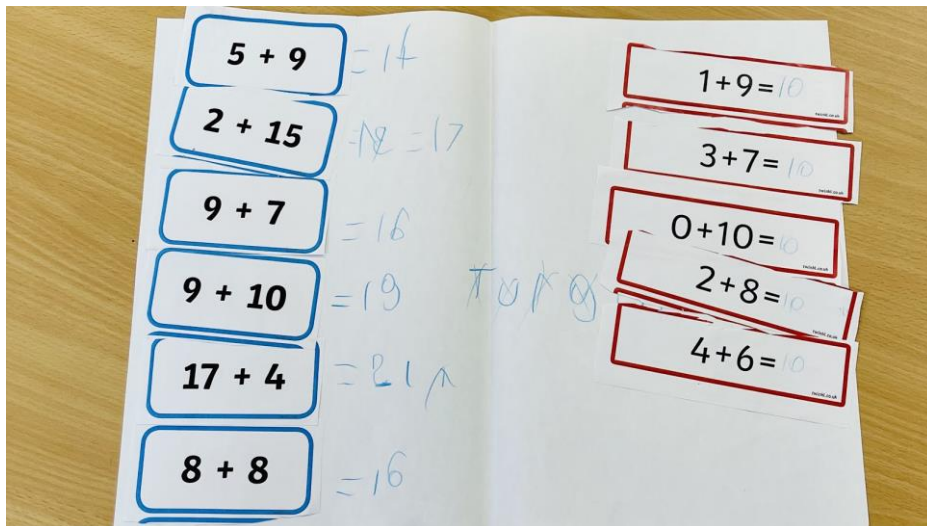 5 + 9 = 14
2 + 15 = 12 = 17
9 + 7 = 16
9 + 10 = 19
17 + 4 = 21
8 + 8 = 16
1+9=10
twinkl.co.uk
3+7=10
twinkl.co.uk
0+10=10
twinkl.co.uk
2+8=10
twinkl.co.uk
4+6=10
twinkl.co.uk